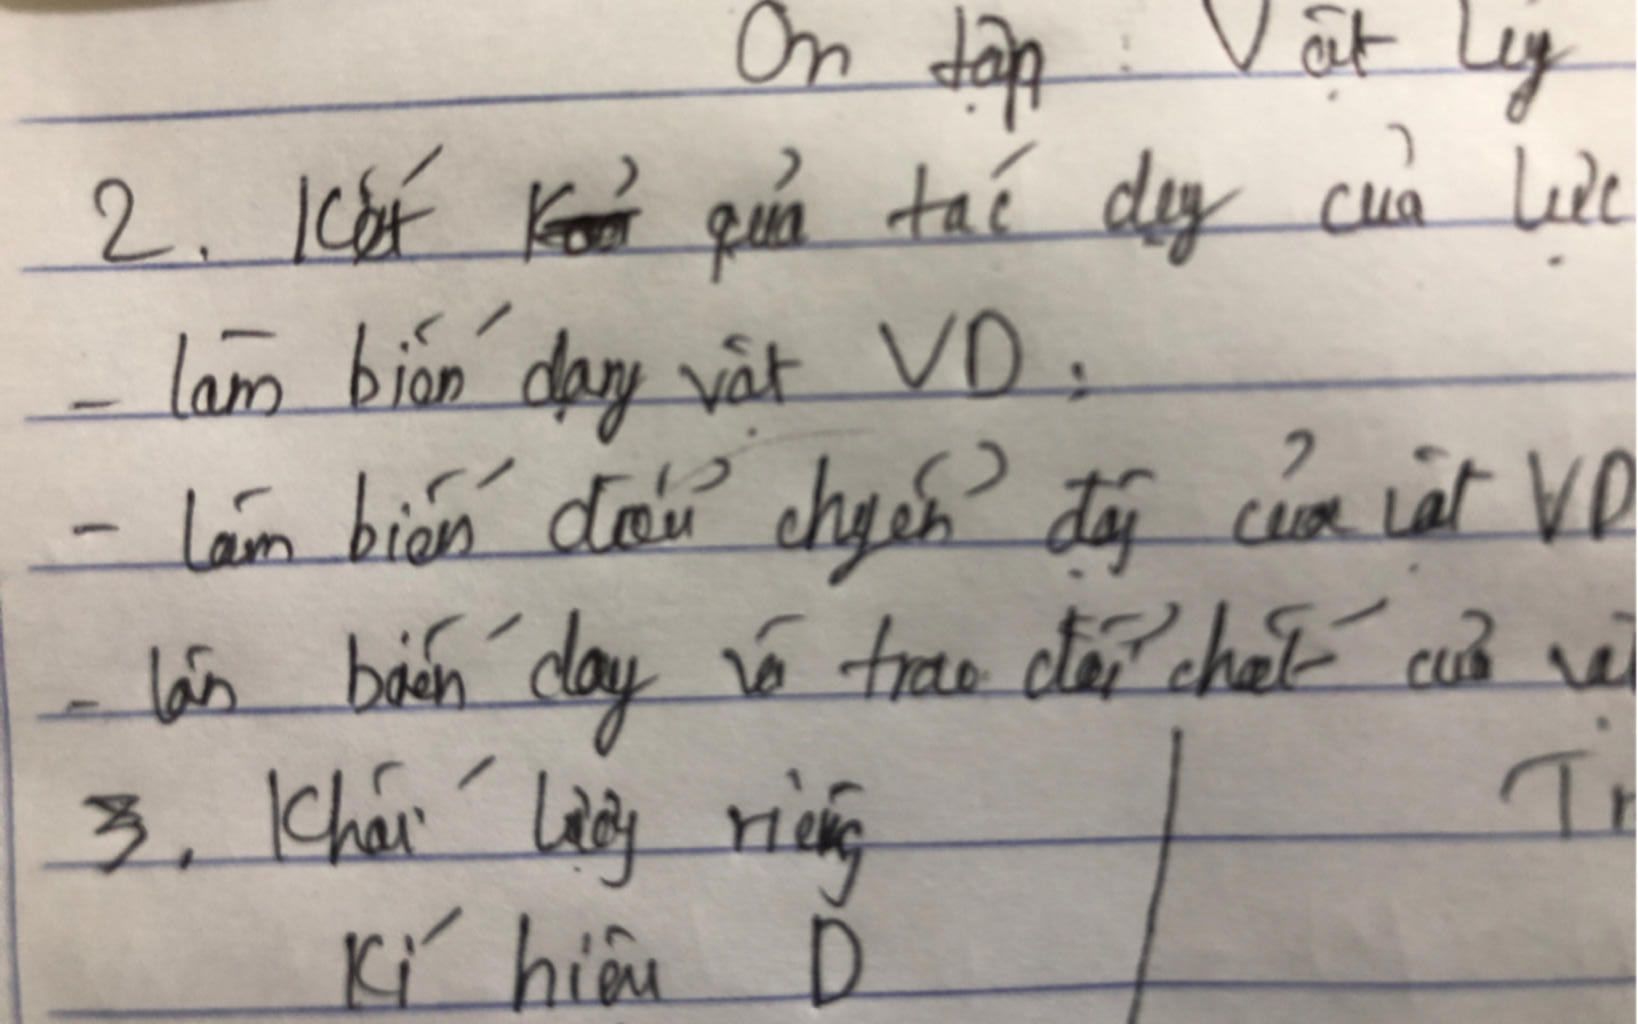 Ôn tập : Vật lý
2. Kết quả tác dụng của lực
- làm biến dạng vật VD :
- làm biến đổi chuyển động của vật VD
- làm biến dạng và trao đổi chất của vật
3. Khối lượng riêng Tr
Kí hiệu D